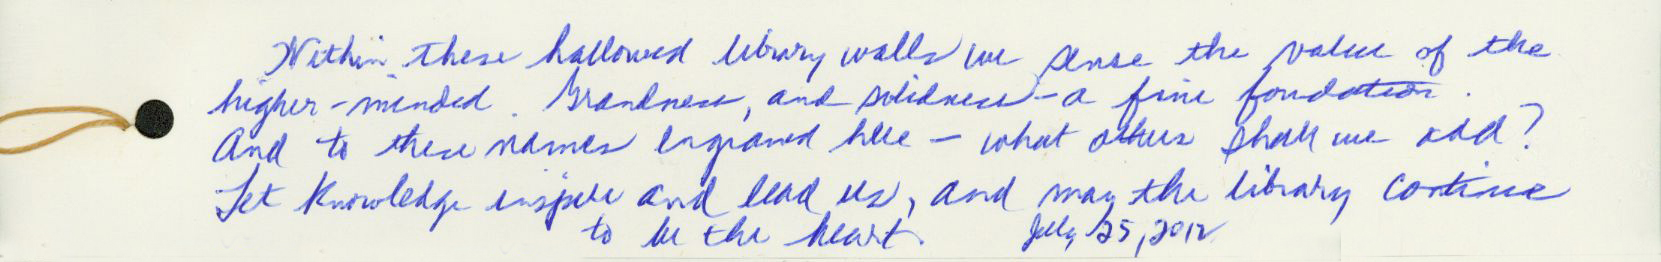 Within these hallowed library walls we sense the value of the
higher-minded. Grandness, and solidness - a fine foundation.
And to these names engraved here - what others shall we add?
Let knowledge inspire and lead us, and may the library continue
to be the heart. July 25, 2012